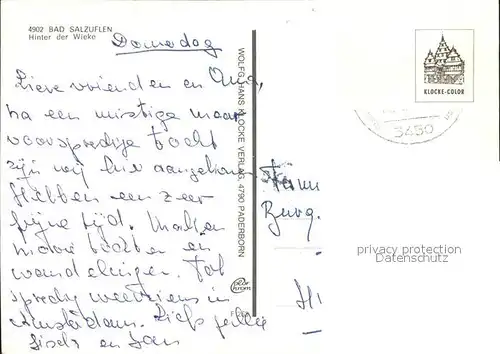 4902 BAD SALZUFLEN
Hinter der Wieke
Donderdag
Lieve vrienden en Oma,
na een mistige maar
voorspoedige tocht
zijn wij hier aangekomen
Hebben een zeer
fijne tijd. Maken
mooie tochten en
wandelingen. Tot
spoedig weerziens in
Amsterdam. Liefs jullie
en Jan
WOLFG. HANS KLOCKE VERLAG, 4790 PADERBORN
KLOCKE-COLOR
3450
Fam
Burg.
privacy protection
Datenschutz